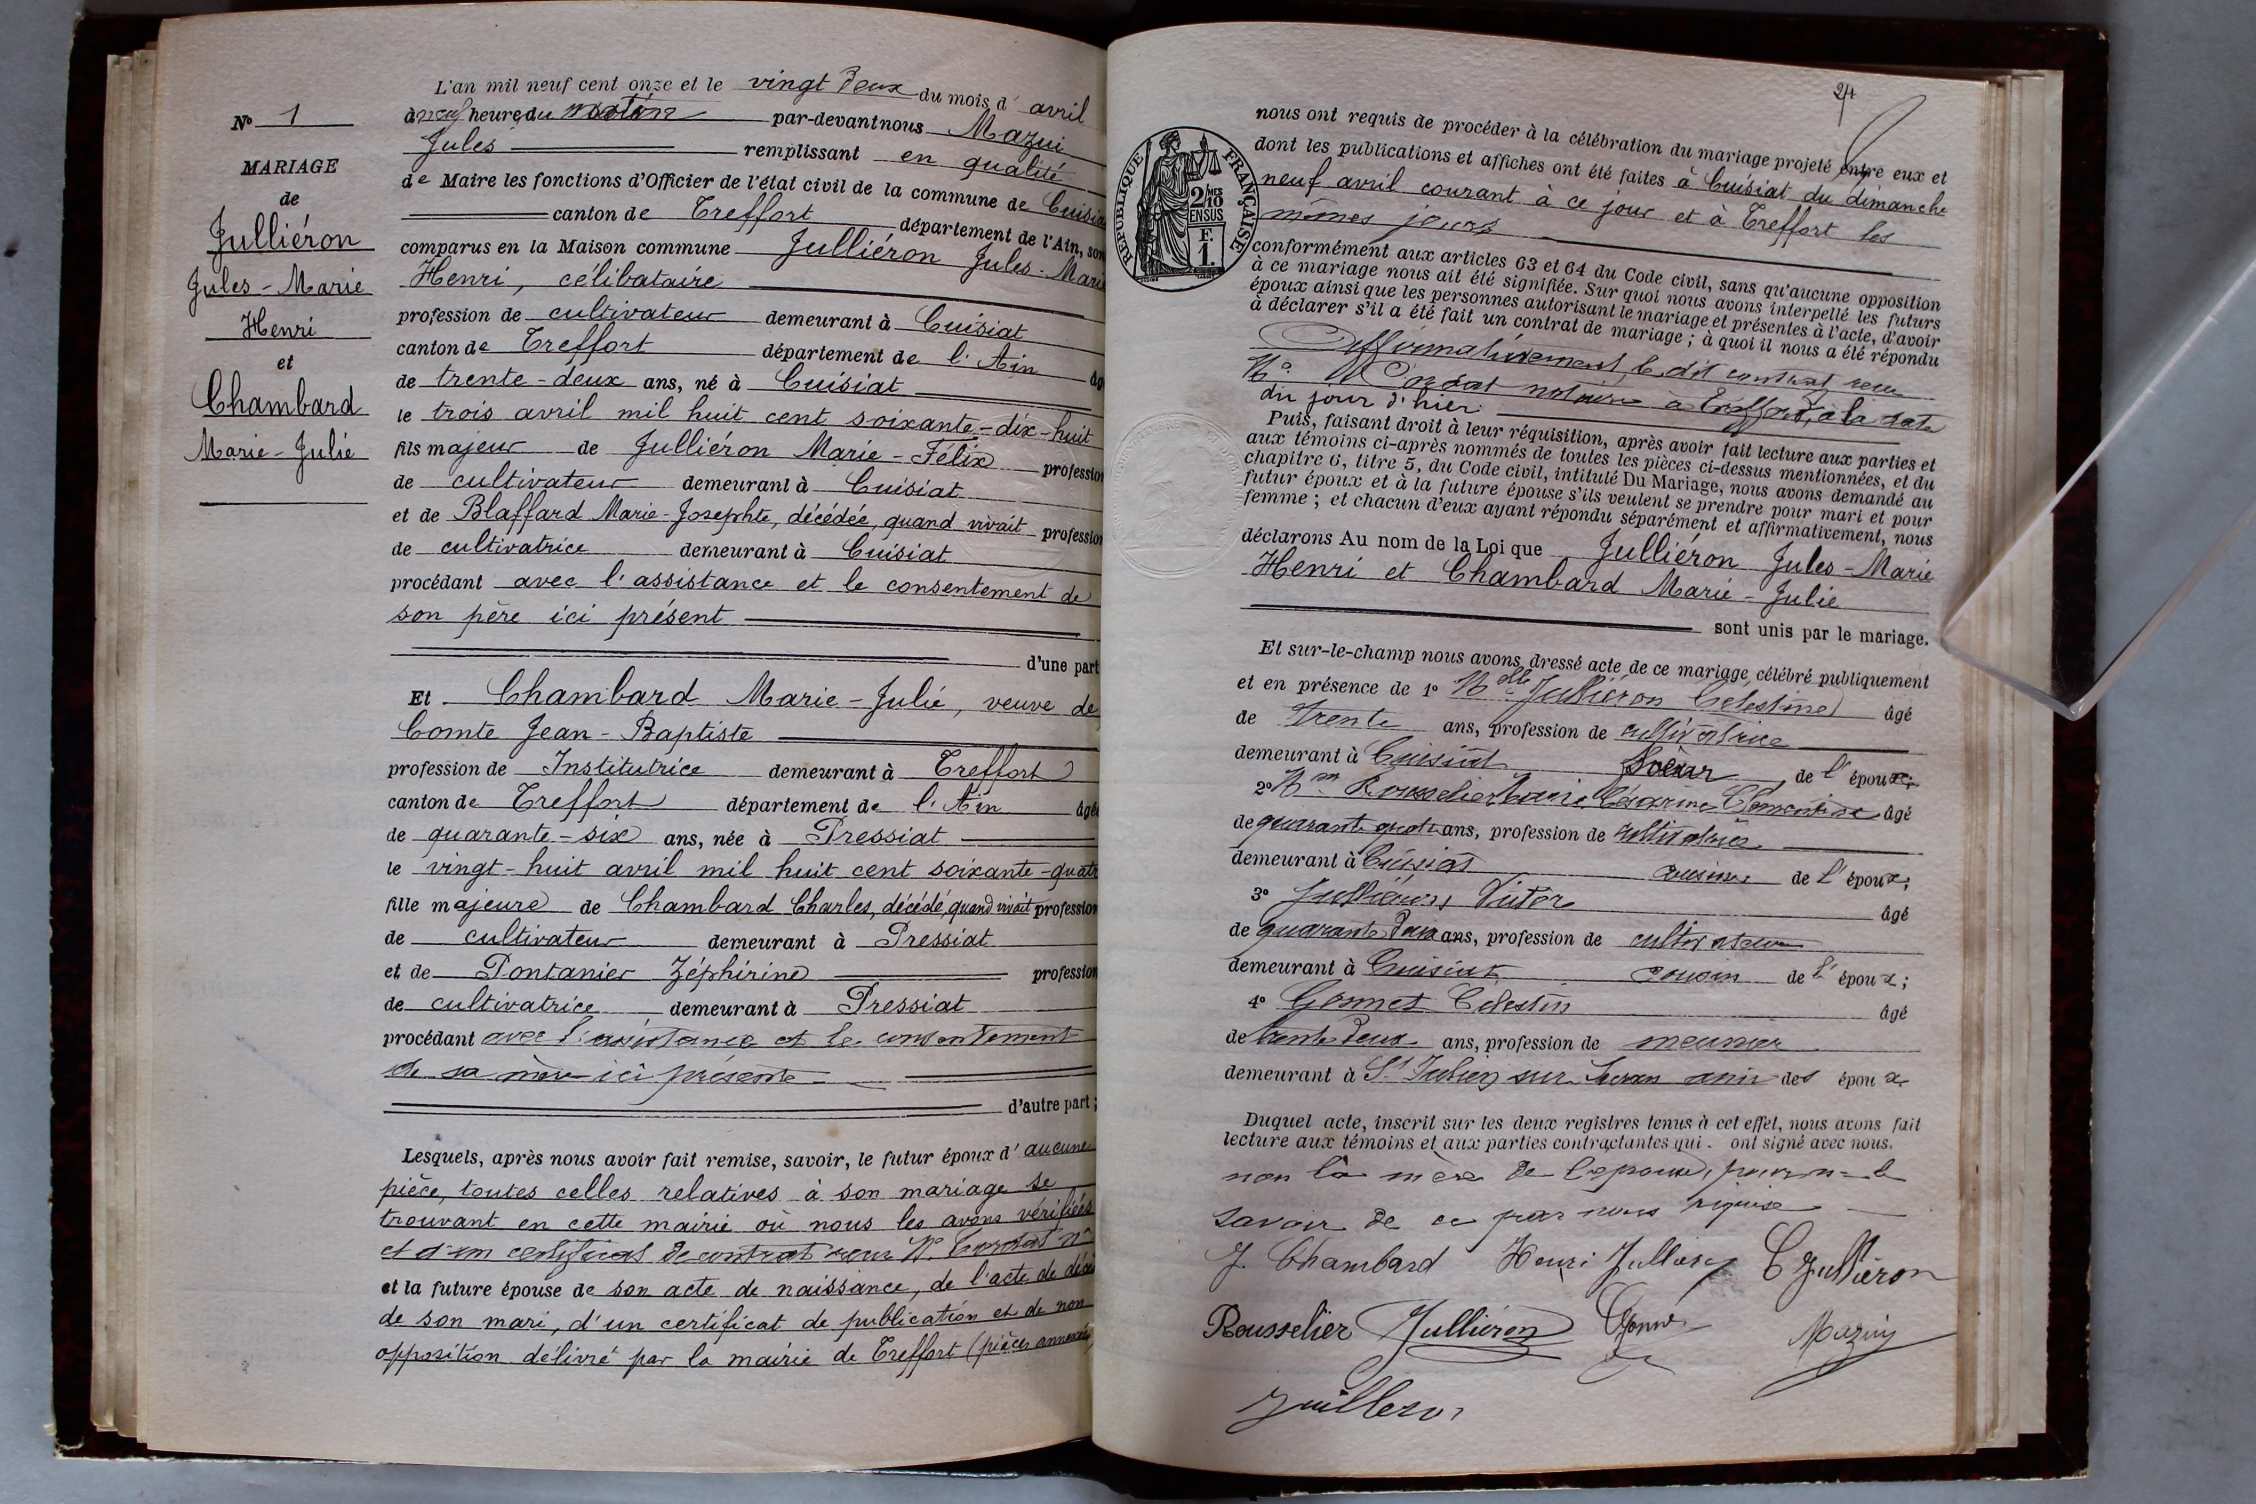 N° 1
MARIAGE
de
Julliéron
Jules-Marie
Henri
et
Chambard
Marie-Julie
L'an mil neuf cent onze et le vingt deux du mois d'avril
à neuf heures du matin par-devant nous Mazui
Jules remplissant en qualité
de Maire les fonctions d'Officier de l'état civil de la commune de Cuisiat
canton de Treffort département de l'Ain, sont
comparus en la Maison commune Julliéron Jules-Marie
Henri, célibataire
profession de cultivateur demeurant à Cuisiat
canton de Treffort département de l'Ain âgé
de trente-deux ans, né à Cuisiat
le trois avril mil huit cent soixante-dix-huit
fils majeur de Julliéron Marie-Félix profession
de cultivateur demeurant à Cuisiat
et de Blaffard Marie-Josephte, décédée, quand vivait profession
de cultivatrice demeurant à Cuisiat
procédant avec l'assistance et le consentement de
son père ici présent
d'une part
Et Chambard Marie-Julie, veuve de
Comte Jean-Baptiste
profession de Institutrice demeurant à Treffort
canton de Treffort département de l'Ain âgée
de quarante-six ans, née à Pressiat
le vingt-huit avril mil huit cent soixante-quatre
fille majeure de Chambard Charles, décédé, quand vivait profession
de cultivateur demeurant à Pressiat
et de Pontanier Zéphirine profession
de cultivatrice demeurant à Pressiat
procédant avec l'assistance et le consentement
de sa mère ici présente
d'autre part;
Lesquels, après nous avoir fait remise, savoir, le futur époux d'aucune
pièce, toutes celles relatives à son mariage se
trouvant en cette mairie où nous les avons vérifiées
et d'un certificat de contrat Me
et la future épouse de son acte de naissance, de l'acte de décès
de son mari, d'un certificat de publication et de non
opposition délivré par la mairie de Treffort (pièces annexées)
24
RÉPUBLIQUE FRANÇAISE
2/10MES
EN SUS
F.
1.
nous ont requis de procéder à la célébration du mariage projeté entre eux et
dont les publications et affiches ont été faites à Cuisiat du dimanche
neuf avril courant à ce jour et à Treffort les
mêmes jours
conformément aux articles 63 et 64 du Code civil, sans qu'aucune opposition
à ce mariage nous ait été signifiée. Sur quoi nous avons interpellé les futurs
époux ainsi que les personnes autorisant le mariage et présentes à l'acte, d'avoir
à déclarer s'il a été fait un contrat de mariage; à quoi il nous a été répondu
Affirmativement, le dit contrat reçu
Me notaire à Treffort, à la date
du jour d'hier
Puis, faisant droit à leur réquisition, après avoir fait lecture aux parties et
aux témoins ci-après nommés de toutes les pièces ci-dessus mentionnées, et du
chapitre 6, titre 5, du Code civil, intitulé Du Mariage, nous avons demandé au
futur époux et à la future épouse s'ils veulent se prendre pour mari et pour
femme; et chacun d'eux ayant répondu séparément et affirmativement, nous
déclarons Au nom de la Loi que Julliéron Jules-Marie
Henri et Chambard Marie-Julie
sont unis par le mariage.
Et sur-le-champ nous avons dressé acte de ce mariage, célébré publiquement
et en présence de 1° Melle Julliéron Célestine âgé
de trente ans, profession de cultivatrice
demeurant à Cuisiat Soeur de l'époux;
2° Mme Rousselier Marie Clémentine âgé
de quarante quatre ans, profession de cultivatrice
demeurant à Cuisiat cousine de l'époux;
3° Julliéron Victor âgé
de quarante deux ans, profession de cultivateur
demeurant à Cuisiat cousin de l'époux;
4° Gonnet Célestin âgé
de trente deux ans, profession de meunier
demeurant à St Julien sur ami des époux
Duquel acte, inscrit sur les deux registres tenus à cet effet, nous avons fait
lecture aux témoins et aux parties contractantes qui ont signé avec nous.
non la mère de l'épouse, pour ne le
savoir de ce par nous requise
J. Chambard Henri Julliéron C Julliéron
Rousselier Julliéron Gonnet Mazuy
Juilleron